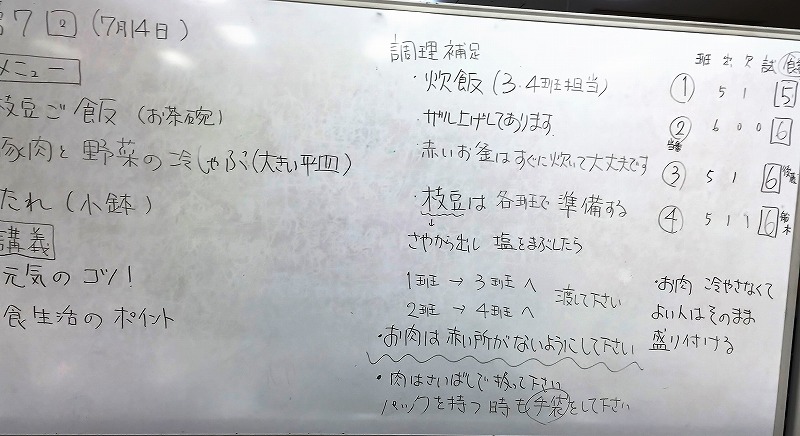 第7回 (7月14日)
メニュー
枝豆ご飯 (お茶碗)
豚肉と野菜の冷しゃぶ(大きい平皿)
たれ (小鉢)
講義
元気のコツ!
食生活のポイント
調理補足
・炊飯 (3・4班担当)
ザル上げしてあります
赤いお釜はすぐに炊いて大丈夫です
・枝豆は各班で準備する
↓
さやから出し 塩をまぶしたら
1班 → 3班へ
2班 → 4班へ
渡して下さい
・お肉は赤い所がないようにして下さい
・肉はさいばしで扱って下さい
パックを持つ時も手袋をして下さい
班 出 欠 試 食
① 5 1 5
② 6 0 0 6
当番
③ 5 1 6
④ 5 1 1 6
・お肉 冷やさなくて
よい人はそのまま
盛り付ける